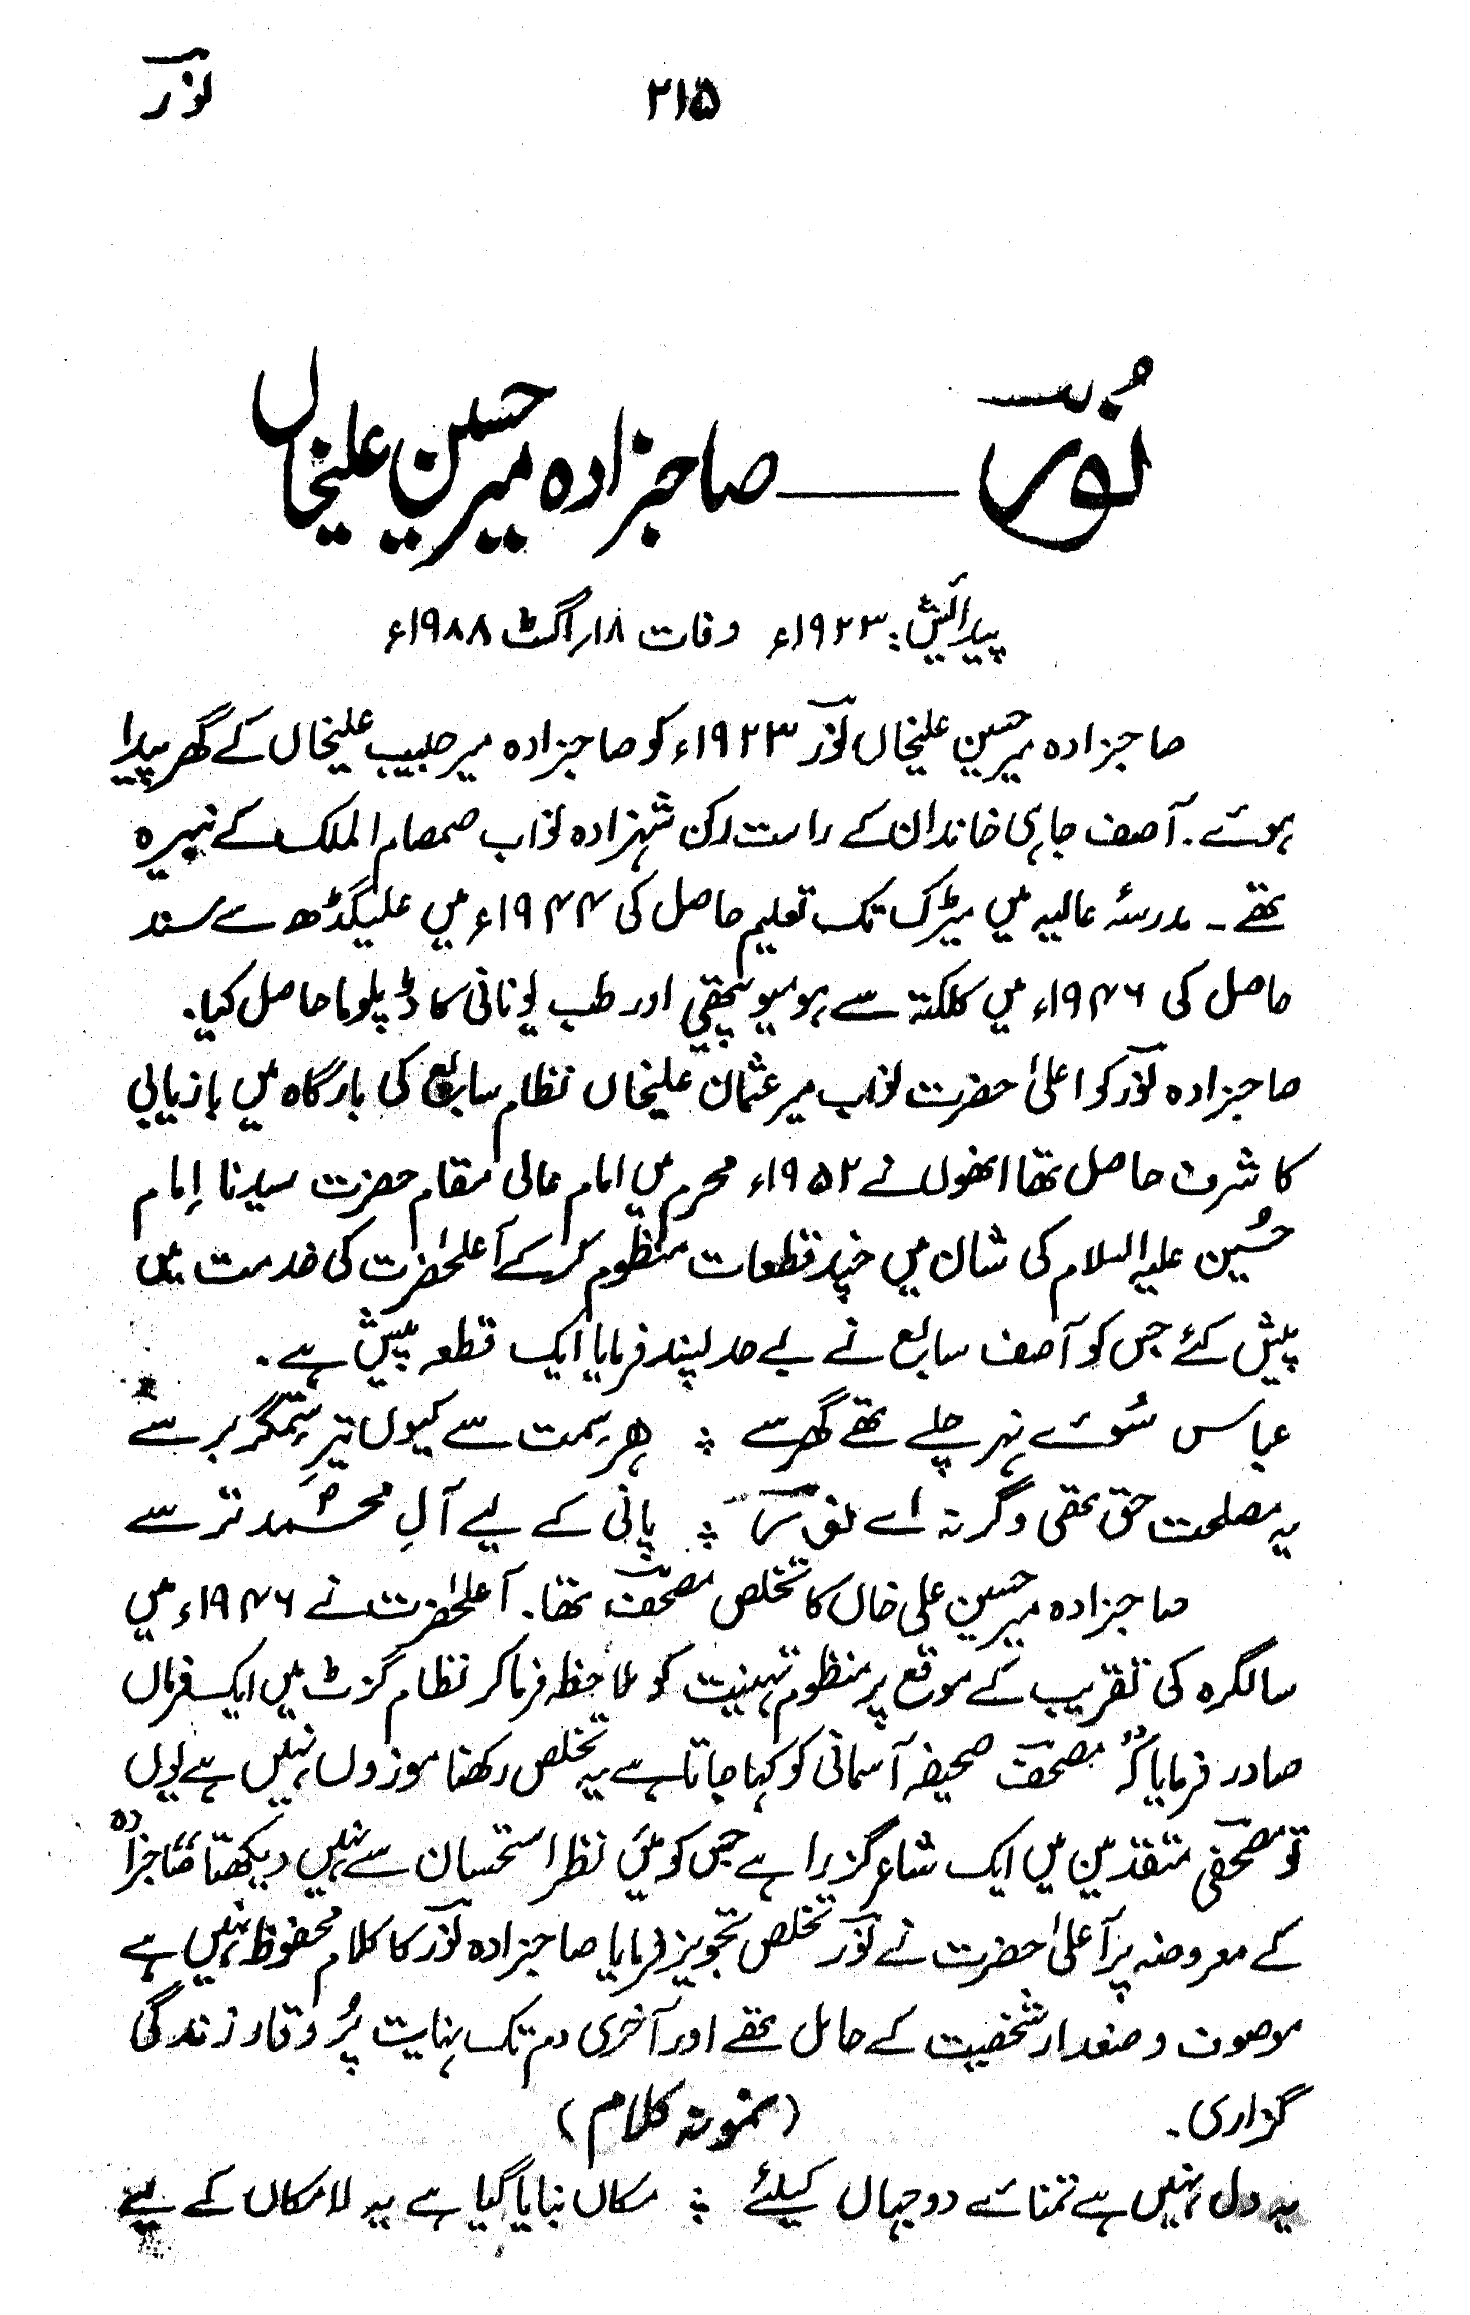 نورؔ
۲۱۵
نُورؔ ــــــ صاحبزادہ میر حسین علیخاں
پیدائش: ۱۹۲۳ء وفات ۱۸؍اگسٹ ۱۹۸۸ء
صاحبزادہ میر حسین علیخاں نورؔ ۱۹۲۳ء کو صاحبزادہ میر حبیب علیخاں کے گھر پیدا
ہوئے۔ آصف جاہی خاندان کے راست رکن شہزادہ نواب صمصام الملک کے نبیرہ
تھے۔ مدرسۂ عالیہ میں میٹرک تک تعلیم حاصل کی ۱۹۴۴ء میں علیگڈھ سے سند
حاصل کی ۱۹۴۶ء میں کلکتہ سے ہومیوپیتھی اور طب یونانی کا ڈپلوما حاصل کیا۔
صاحبزادہ نورؔ کو اعلیٰ حضرت نواب میر عثمان علیخاں نظام سابع کی بارگاہ میں بازیابی
کا شرف حاصل تھا انھوں نے ۱۹۵۲ء محرم میں امام عالی مقام حضرت سیدنا اِمام
حُسین علیہ السلام کی شان میں چند قطعات منظوم کر کے آعلحٰضرت کی خدمت میں
پیش کئے جس کو آصف سابع نے بے حد پسند فرمایا ایک قطعہ پیش ہے۔
عباس سُوئے نہر چلے تھے گھر سے ؞ ہر سِمت سے کیوں تیرِ ستمگر برسے
یہ مصلحت حق تھی وگرنہ اے نورؔ ؞ پانی کے لیے آلِ محمّدؐ ترسے
صاحبزادہ میر حسین علی خاں کا تخلص مصحفؔ تھا۔ آعلحٰضرت نے ۱۹۴۶ء میں
سالگرہ کی تقریب کے موقع پر منظوم تہنیت کو ملاحظہ فرما کر نظام گزٹ میں ایک فرمان
صادر فرمایا کہ "مصحفؔ صحیفہ آسمانی کو کہا جاتا ہے یہ تخلص رکھنا موزوں نہیں ہے یوں
تو مصحفیؔ متقدمین میں ایک شاعر گزرا ہے جس کو میں نظر استحسان سے نہیں دیکھتا" صاحبزادہ
کے معروضہ پر آعلیٰ حضرت نے نورؔ تخلص تجویز فرمایا صاحبزادہ نورؔ کا کلام محفوظ نہیں ہے
موصوف وضعدار شخصیت کے حامل تھے اور آخری دم تک نہایت پُر وقار زندگی
گزاری۔ (نمونہ کلام)
یہ دل نہیں ہے تمنائے دوجہاں کیلئے ؞ مکاں بنایا گیا ہے یہ لامکاں کے لیے